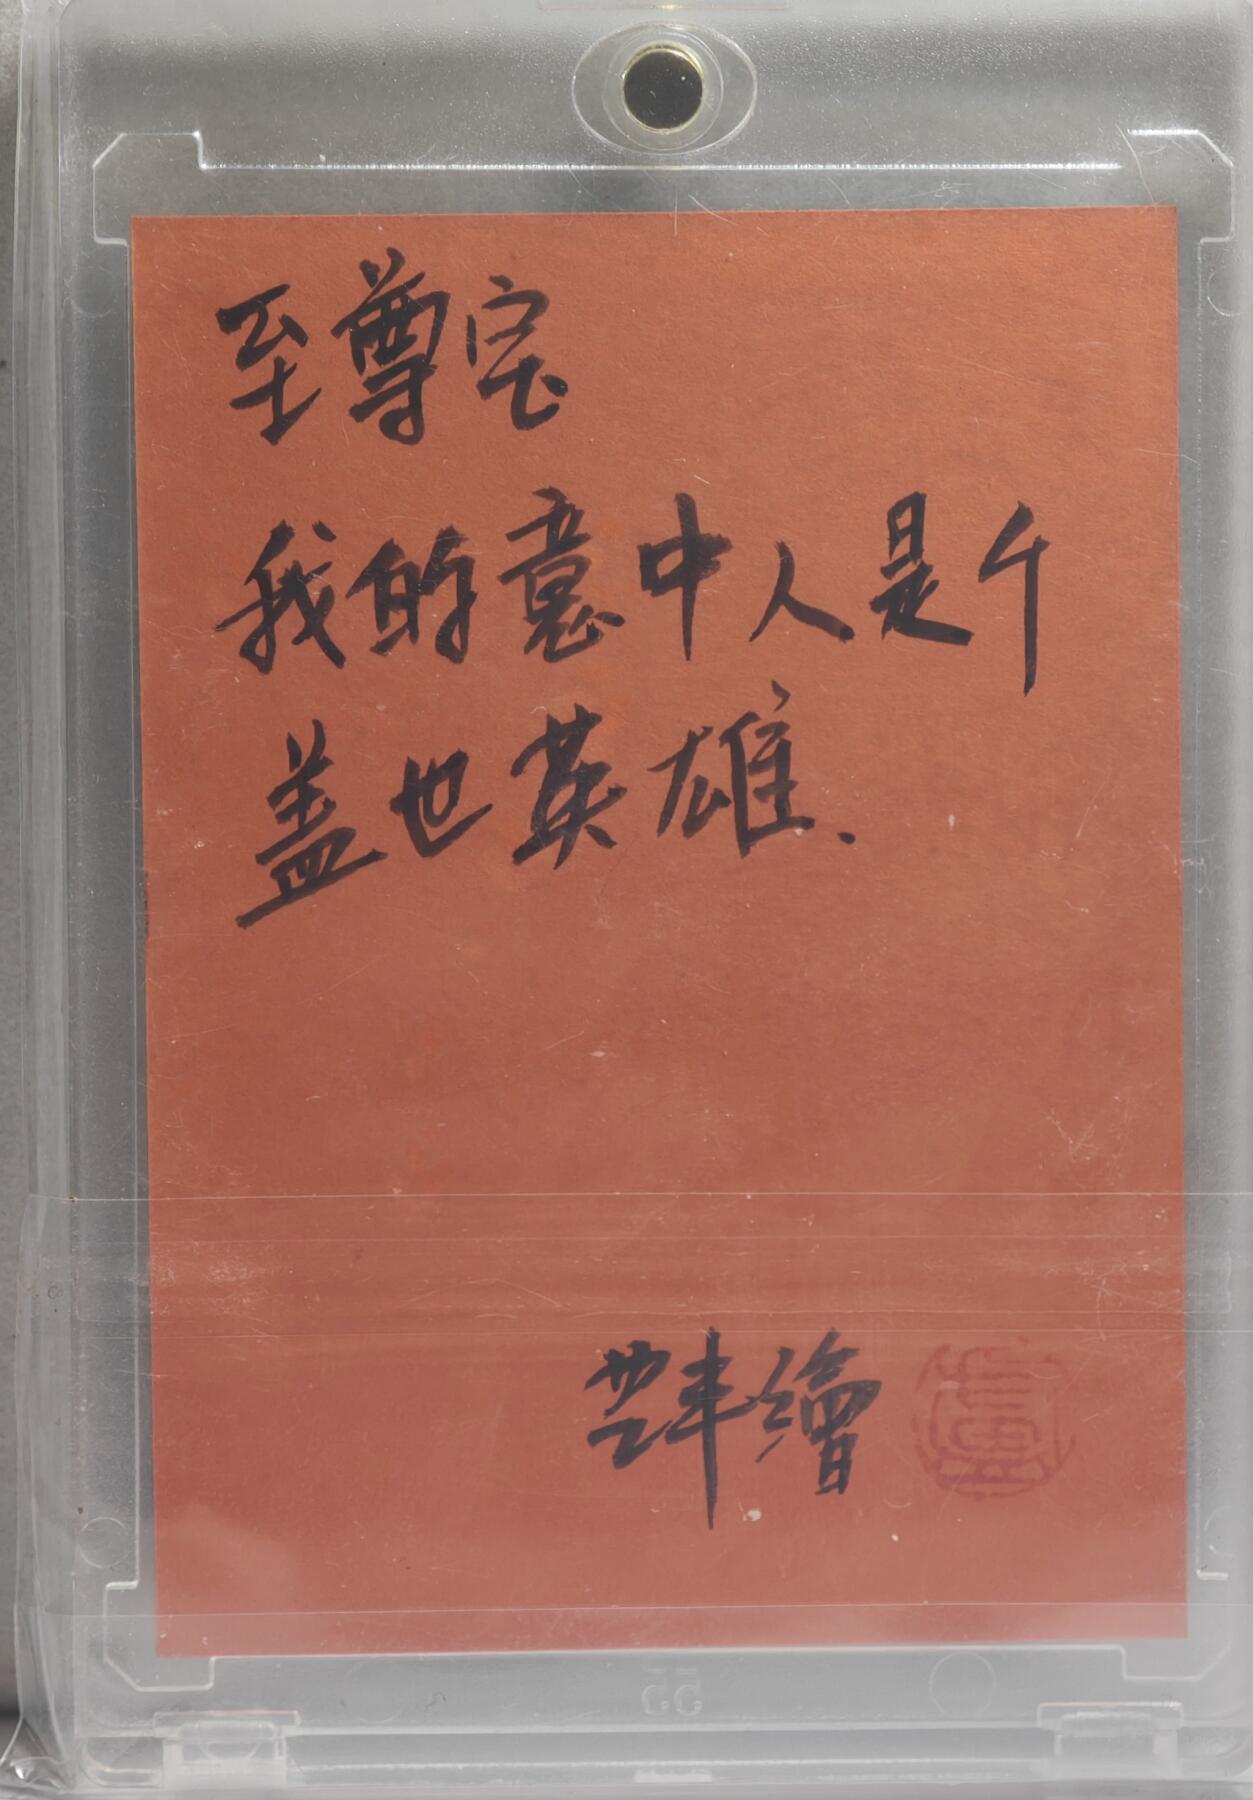 至尊宝
我的意中人是个
盖也英雄.
繪
55